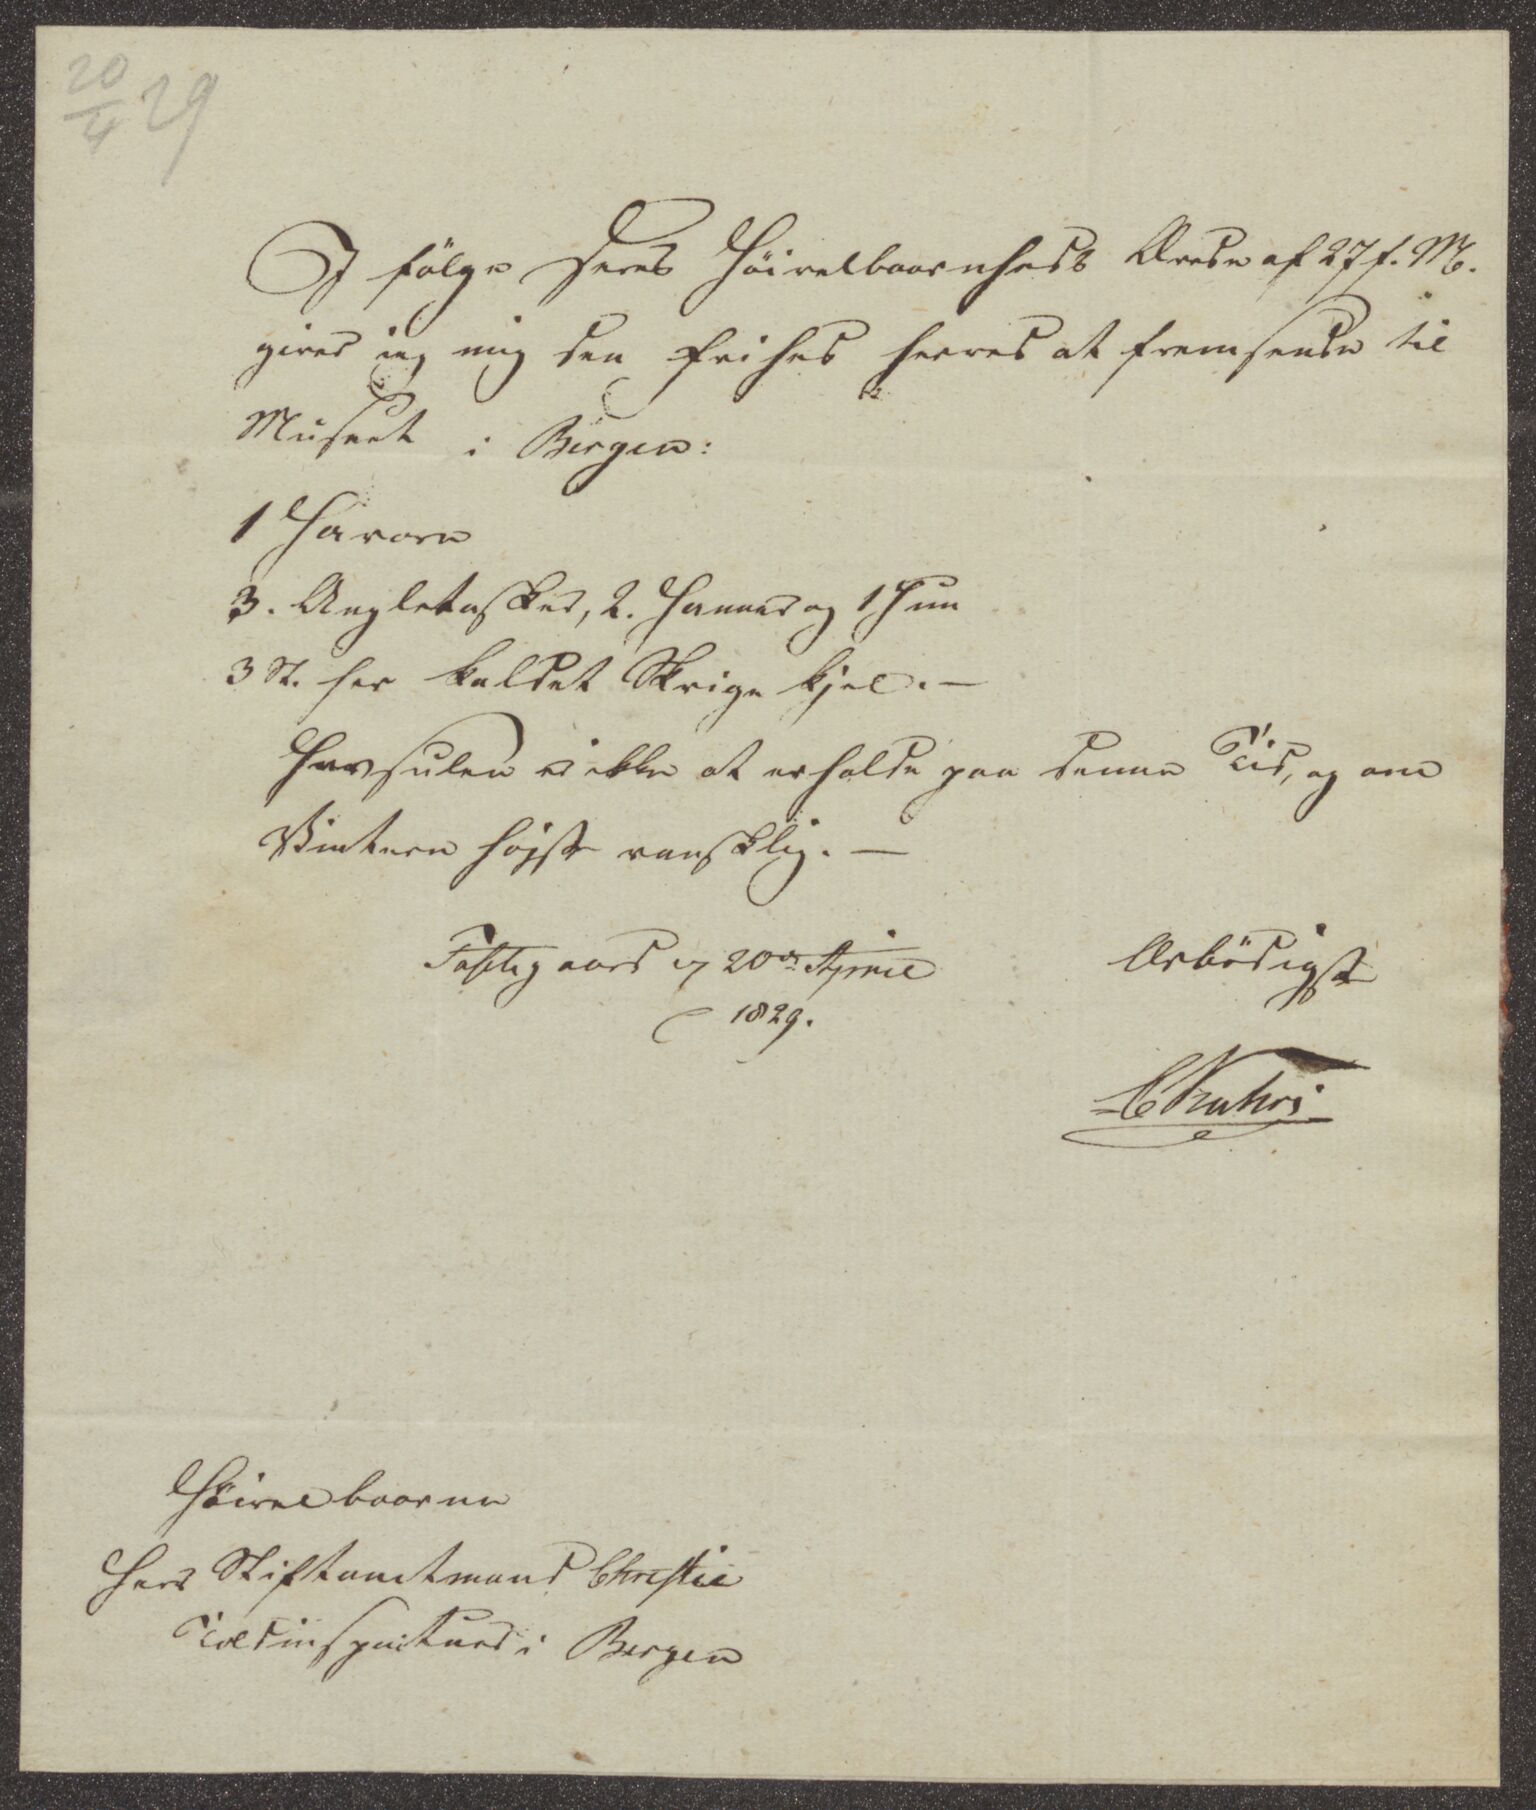 20/4 29
I følge Deres Høivelbaarenheds Ærede af 27 f. M.
giver jeg mig den Frihed herved at fremsende til
Museet i Bergen:
1 Havørn
3. Angletasker, 2. Hanner og 1 Hun
3 St. her kaldet Skrige kjel. —
Havsulen er ikke at erholde paa denne Tid, og om
Vinteren højst vanskelig. —
d 20de April
1829.
Ærbødigst
Høivelbaarne
Herr Stiftamtmand Christie
Toldinspecteur i Bergen